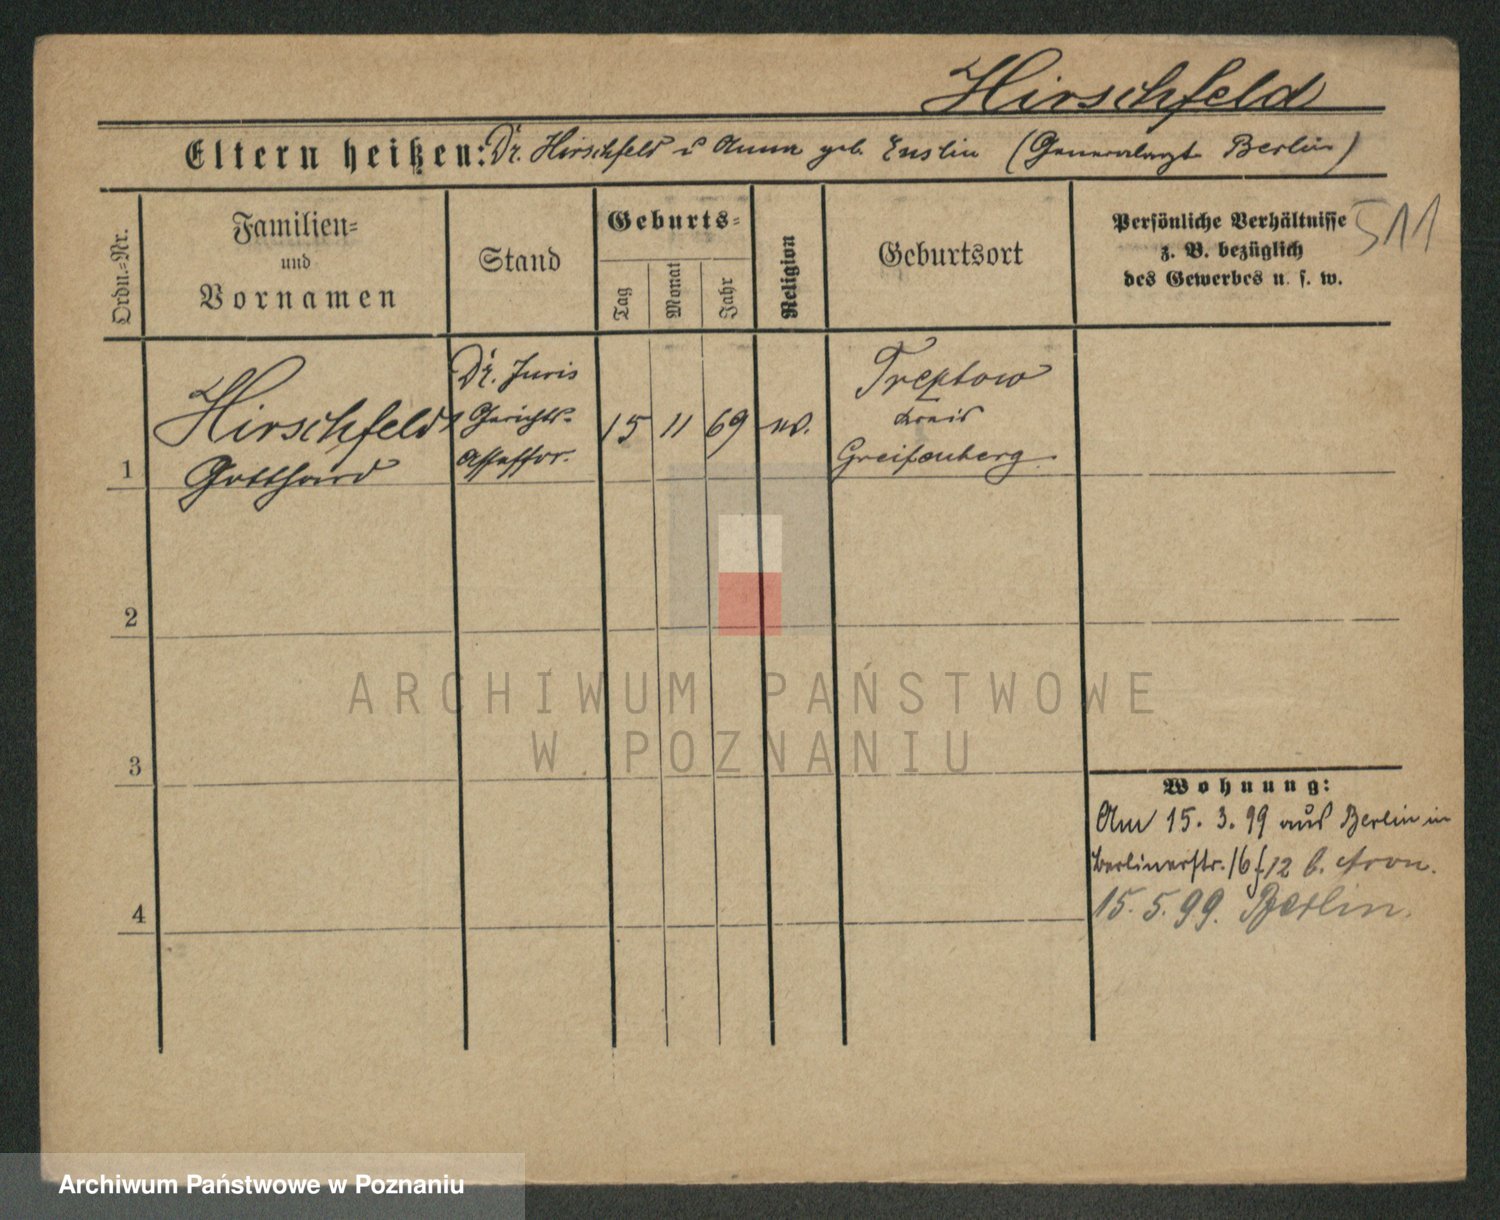 Hirschfeld
Eltern heißen: Dr. Hirschfeld u Anna geb. Enslin (Generalarzt Berlin)
Ordn.=Nr.
Familien=
und
Vornamen
Stand
Geburts=
Tag
Monat
Jahr
Religion
Geburtsort
Persönliche Verhältnisse
z. B. bezüglich
des Gewerbes u. s. w.
511
1
Hirschfeld
Gotthard
Dr. Juris
Gerichts-
Assessor.
15
11
69
ev.
Treptow
Kreis
Greifenberg
2
3
4
Wohnung:
Am 15. 3. 99 aus Berlin in
Berlinerstr. 16 f. 12 b. Aron.
15. 5. 99. Berlin.
ARCHIWUM PAŃSTWOWE
W POZNANIU
Archiwum Państwowe w Poznaniu